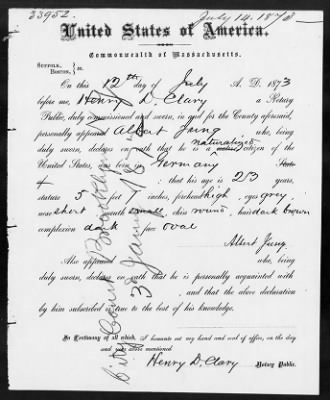 33952.
July 14. 1873
United States of America.
Commonwealth of Massachusetts.
SUFFOLK,
BOSTON, ss.
On this 12th day of July A. D. 1873
before me, Henry D. Clary a Notary
Public, duly commissioned and sworn, in and for the County aforesaid,
personally appeared Albert Jung who, being
naturalized
duly sworn, declares on oath that he is a citizen of the
United States, was born in Germany State
of : that his age is 23 years,
stature 5 feet 7 inches, forehead high, eyes grey,
nose short mouth small, chin round, hair dark brown
complexion dark face oval
Albert Jung
Also appeared who, being
duly sworn, declares on oath that he is personally acquainted with
and that the above declaration
by him subscribed is true to the best of his knowledge.
In Testimony of all which, I hereunto set my hand and seal of office, on the day
and year above mentioned
Henry D. Clary Notary Public.
City Court Brooklyn
3 January